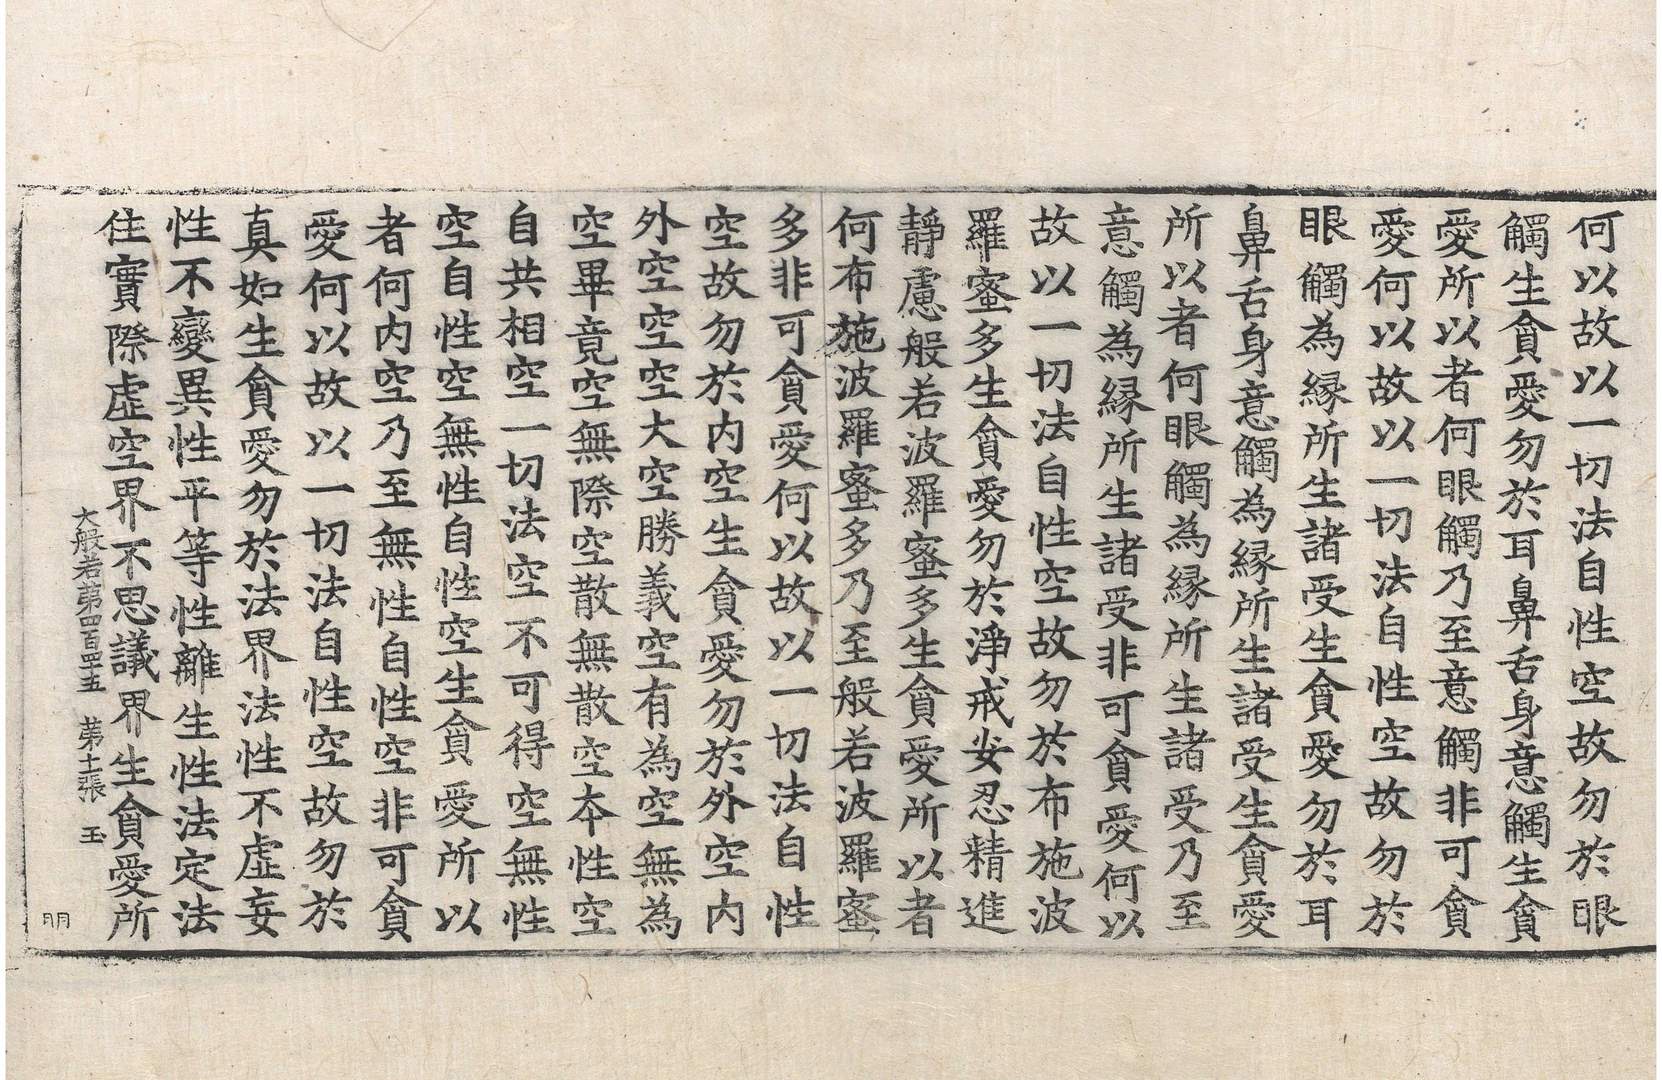 何以故以一切法自性空故勿於眼
觸生貪愛勿於耳鼻舌身意觸生貪
愛所以者何眼觸乃至意觸非可貪
愛何以故以一切法自性空故勿於
眼觸為縁所生諸受生貪愛勿於耳
鼻舌身意觸為縁所生諸受生貪愛
所以者何眼觸為縁所生諸受乃至
意觸為縁所生諸受非可貪愛何以
故以一切法自性空故勿於布施波
羅蜜多生貪愛勿於淨戒安忍精進
靜慮般若波羅蜜多生貪愛所以者
何布施波羅蜜多乃至般若波羅蜜
多非可貪愛何以故以一切法自性
空故勿於内空生貪愛勿於外空内
外空空空大空勝義空有為空無為
空畢竟空無際空散無散空本性空
自共相空一切法空不可得空無性
空自性空無性自性空生貪愛所以
者何内空乃至無性自性空非可貪
愛何以故以一切法自性空故勿於
真如生貪愛勿於法界法性不虛妄
性不變異性平等性離生性法定法
住實際虛空界不思議界生貪愛所
大般若第四百四十五 第十張 玉
明